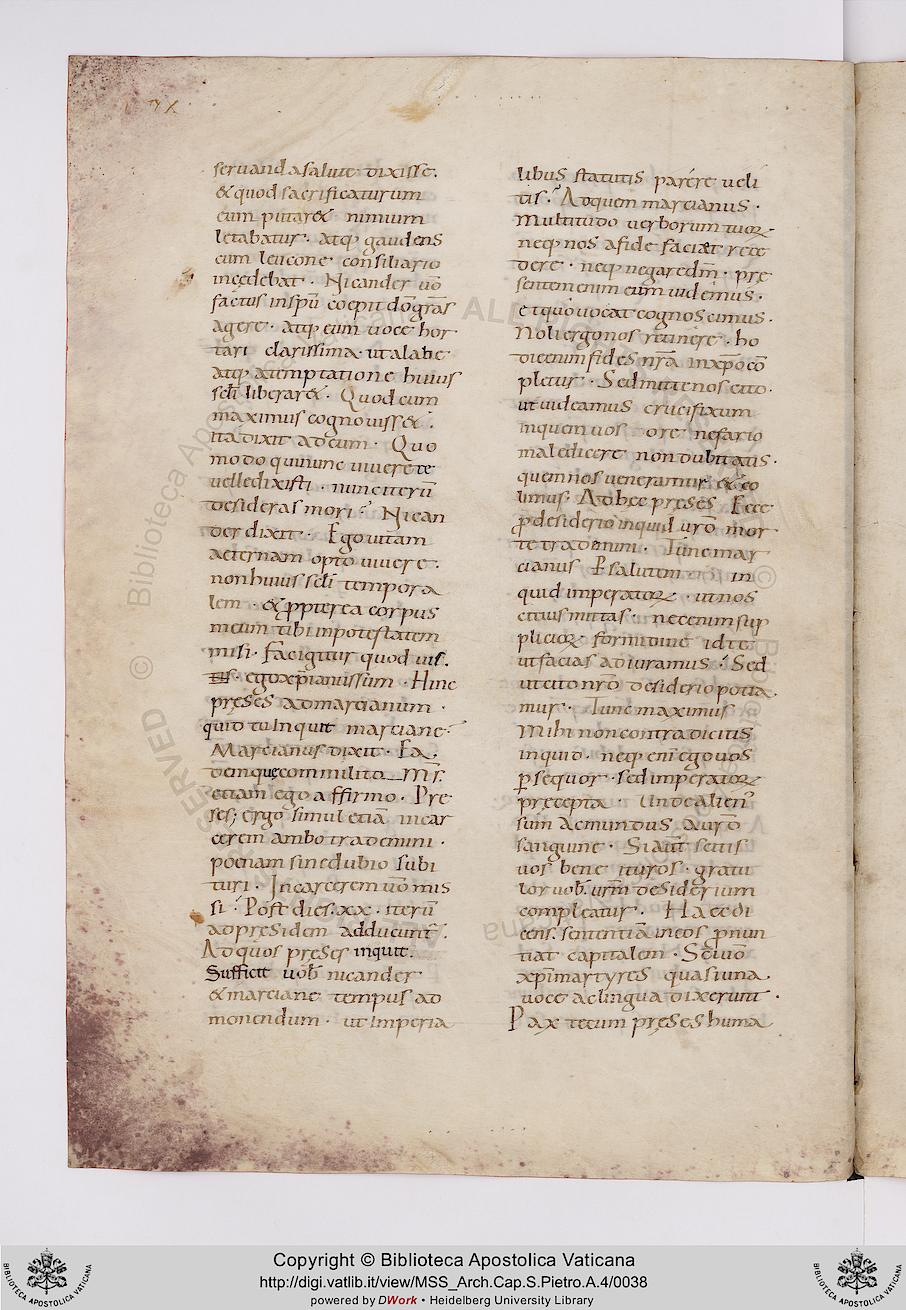 seruanda salute dixisse.
& quod sacrificaturum
eum putar& nimium
letabatur. atq; gaudens
cum leucone consiliario
incedebat. Nicander uō
factus inspū coepit dōgrās
agere. atq; cum uoce hor
tari clarissima ut a labe
atq; a temptatione huius
scli liberar&. Quod cum
maximus cognouiss&.
ita dixit ad eum. Quo
modo qui nunc uiuere te
uelle dixisti. nunc iterū
desideras mori? Nican
der dixit. Ego uitam
aeternam opto uiuere.
non huius scli tempora
lem. & ppterea corpus
meum tibi in potestatem
misi. Fac igitur quod uis.
ego xpianus sum. Hinc
preses ad marcianum.
quid tu Inquit marciane?
Marcianus dixit. Ea
demque commilito ms.
etiam ego affirmo. Pre
ses; ergo simul etiā in car
cerem ambo trademini.
poenam sine dubio subi
turi. In carcerem uōo mis
si. Post dies. xx. iterū
ad presidem adducunt.
Ad quos preses inquit.
Sufficit uob nicander
& marciane tempus ad
monendum. ut Imperia
libus statutis parere ueli
tis. Ad quem marcianus.
Multitudo uerborum tuoꝝ
neq; nos a fide faciat rece
dere. neq; negare dm̄. pre
sentem enim eum uidemus.
et quo uocat cognoscimus.
Noli ergo nos retinere. ho
die enim fides nrā in xpo cō
pletur. Sed mitte nos cito.
ut uideamus crucifixum
in quem uos ore nefario
maledicere non dubitatis.
quem nos ueneramur & co
limus. Ad hec preses Ecce
p desiderio inquid urō mor
te trademini. Tunc mar
cianus P salutem in
quid imperatoꝝ. ut nos
citius mittas. nec enim sup
plicioꝝ formidine id te
ut facias adiuramus. Sed
ut cito nrō desiderio potia
mur. Tunc maximus
Mihi non contradicitis
inquid. neq; eni ego uos
p sequor. sed imperatoꝝ
precepta. Unde alien
sum ac mundus a urō
sanguine. Si aūt scitis
uos bene ituros. gratu
lor uob. urm desiderium
compleatur. Haec di
cens. sententiā in eos pnun
tiat capitalem. Sci uōo
xpi martyres quasi una
uoce ac lingua dixerunt.
Pax tecum preses huma
Copyright © Biblioteca Apostolica Vaticana
http://digi.vatlib.it/view/MSS_Arch.Cap.S.Pietro.A.4/0038
powered by DWork • Heidelberg University Library